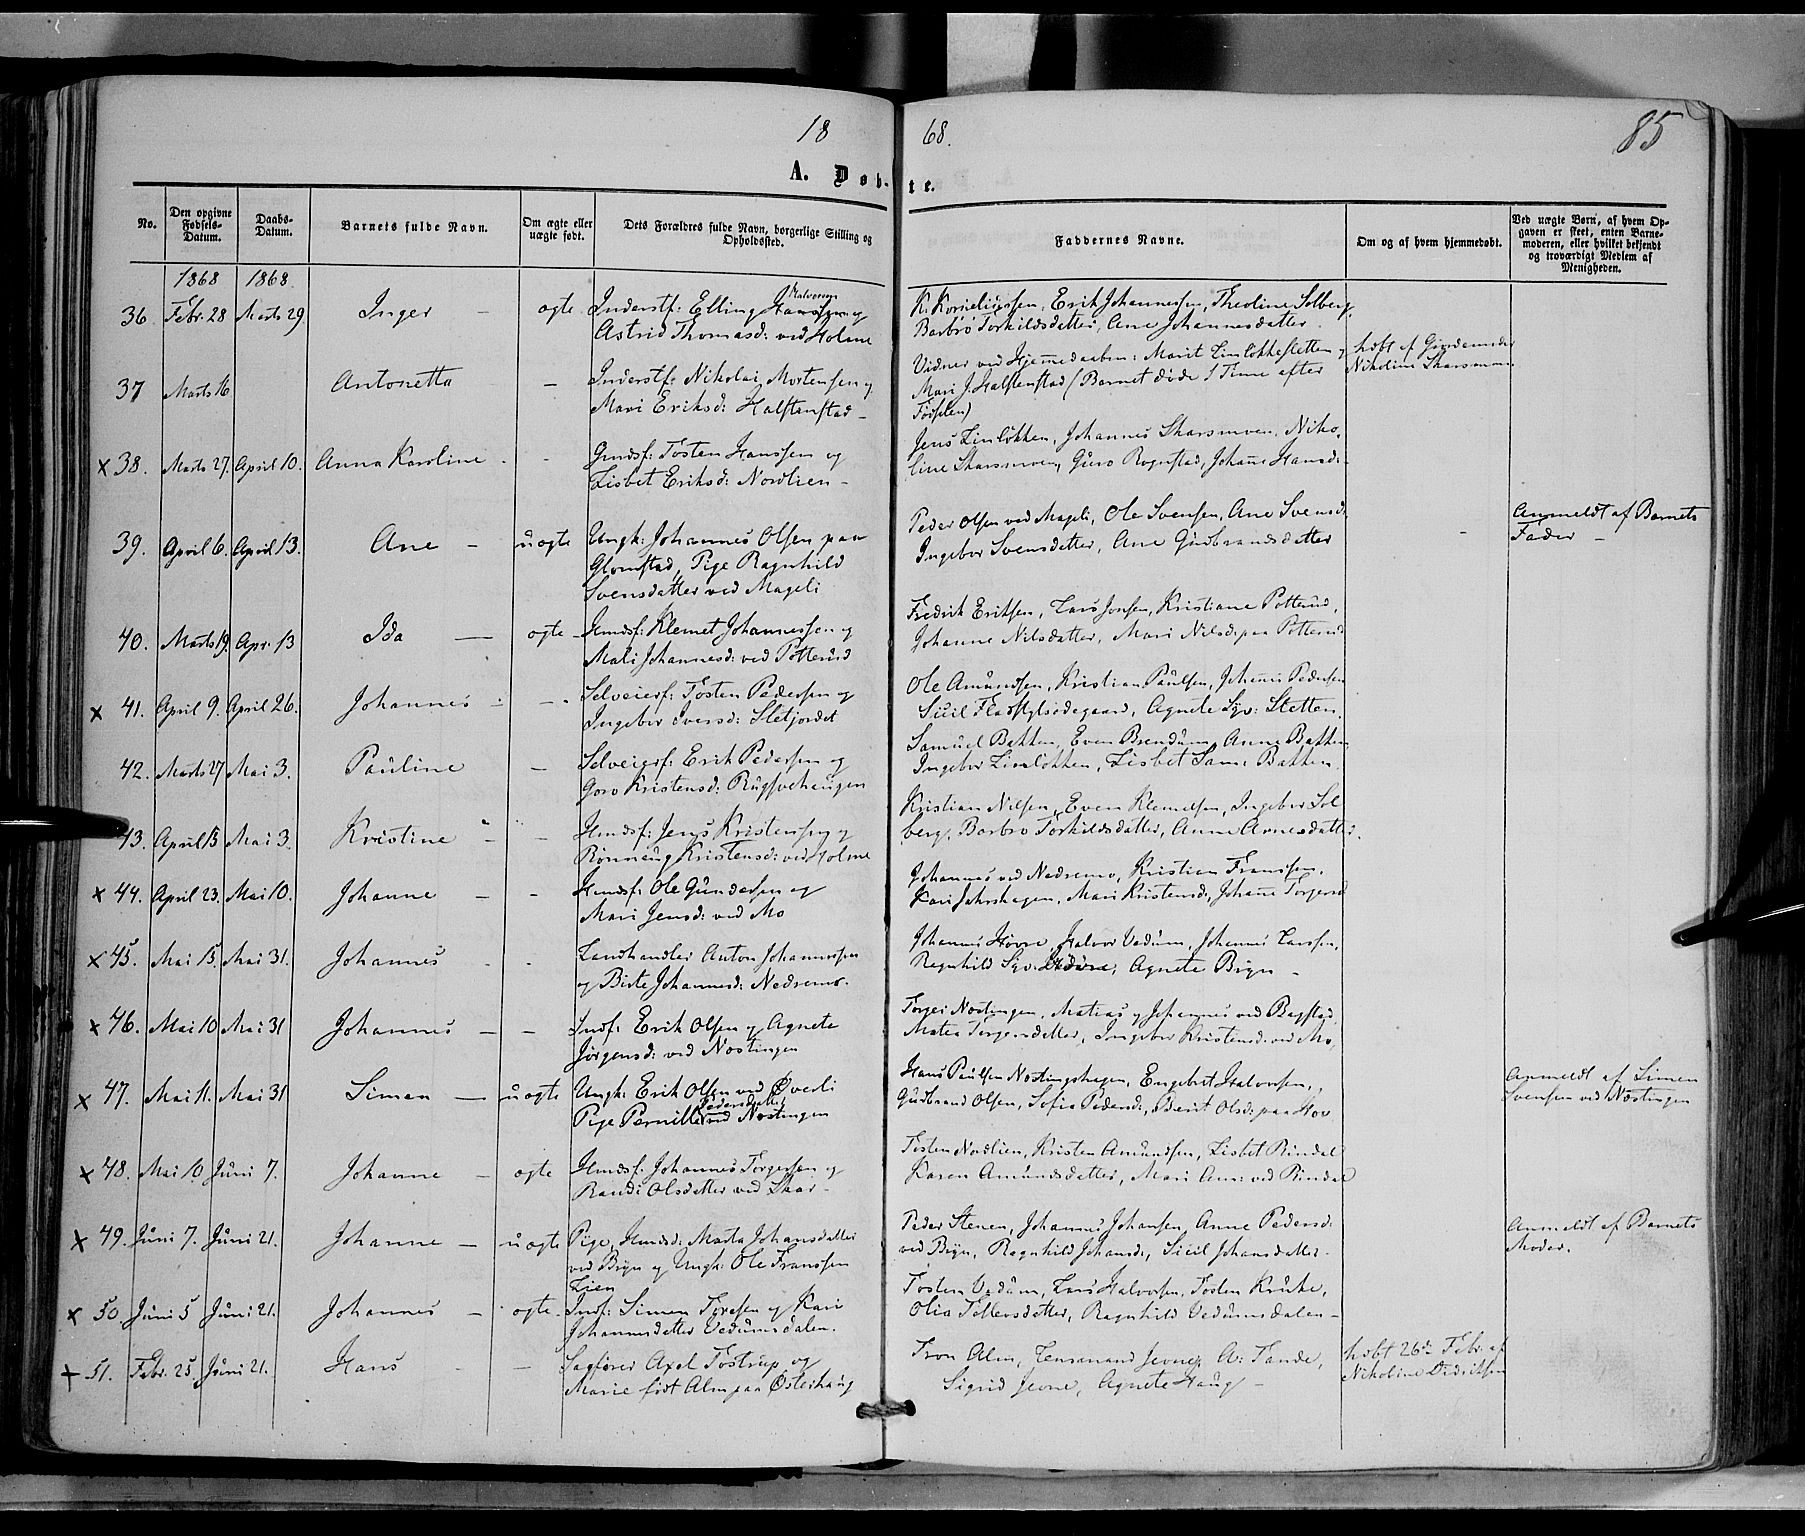 18 68.
85
A. Døb- te.
No.
Den opgivne Fødsels-Datum.
Daabs-Datum.
Barnets fulde Navn.
Om ægte eller uægte født.
Dets Forældres fulde Navn, borgerlige Stilling og Opholdssted.
Faddernes Navne.
Om og af hvem hjemmedøbt.
Ved uægte Børn, af hvem Opgaven er skeet, enten Barnemoderen, eller hvilket bekjendt og troværdigt Medlem af Menigheden.
1868 1868.
36. Febr. 28 Marts 29 Inger — ægte Inderstf: Elling Halvorsen og
Astrid Thomasd: ved Holme
K. Korneliussen, Erik Johannessen, Theoline Solberg,
Barbro Torkildsdatter, Ane Johannesdatter.
37 Marts 16 Antonetta — Inderstf: Nikolai Mortensen og
Mari Eriksd: Halstenstad —
Vidner ved Hjemmedaaben: Marit Linløkkestetten og
Mari J. Halstenstad (Barnet døde 1 Time efter
Fødselen)
hæbt af Gjordemoder
Nikoline Skarsmoen
x 38. Marts 27. April 10. Anna Karoline - - Gmdsf: Tosten Hanssen og
Lisbet Eriksd: Nordlien —
Jens Linløkken, Johannes Skarsmoen, Niko-
line Skarsmoen, Guro Rognstad, Johane Hansd:
39. April 6. April 13. Ane — uægte Ungk: Johannes Olsen paa
Glomstad, Pige Ragnhild
Svensdatter ved Mageli
Peder Olsen ved Mageli, Ole Svensen, Ane Svensd:
Ingebor Svensdatter, Ane Gudbrandsdatter
Anmeldt af Barnets
Fader —
40. Marts 19. Apr. 13 Ida — ægte — Hmdsf: Klemet Johannessen og
Mali Johannesd: ved Potterud
Fredrik Eriksen, Lars Jonsen, Kristiane Potterud,
Johanne Nilsdatter, Mari Nilsd: paa Potterud
x 41. April 9. April 26. Johannes - — Selveierf: Tosten Pedersen og
Ingebor Iversd: Sletjordet
Ole Amundsen, Kristian Paulsen, Johannes Pedersen
Sicil Ødegaard, Agnete Syv: Stetten.
42. Marts 27 Mai 3. Pauline — Selveierf: Erik Pedersen og
Goro Kristensd: Rugsvehaugen
Samuel Bakken, Even Brendum, Anne Bakken
Ingebor Linløkken, Lisbet Sam: Bakken.
43. April 13 Mai 3. Kristine - — Hmdsf: Jens Kristensen og
Rønnaug Kristensd: ved Holme
Kristian Nilsen, Even Klemetsen, Ingebor Sol
berg, Barbro Torkildsdatter, Anne Arnesdatter.
x 44. April 23. Mai 10. Johanne — - Hmdsf: Ole Gundersen og
Mari Jensd: ved Mo
Johannes ved Nedremo, Kristian Franssen,
Kari Jahrshagen, Mari Kristensd:, Johane Torgersd
x 45. Mai 15. Mai 31. Johannes - - Landhandler Anton Johannessen
og Birte Johannesd: Nedremo.
Johannes Hovre, Halvor Vedum, Johannes Larssen,
Ragnhild Syv: Agnete Bryn —
x 46. Mai 10 Mai 31 Johannes — — Indf: Erik Olsen og Agnete
Jørgensd: ved Nostingen
Torger Nostingen, Matias og Johannes ved Bagstad,
Matea Torgersdatter, Ingebor Kristensd: ved Mo,
x 47. Mai 11. Mai 31 Simen — uægte Ungk: Erik Olsen ved Øverli
Pige Pernille Pedersdatter ved Nostingen
Hans Paulsen Nostingshagen, Engebret Halvorsen,
Gudbrand Olsen, Sofia Pedersd:, Berit Olsd: paa Hov
Anmeldt af Simen
Svensen ved Nostingen
x 48. Mai 10 Juni 7. Johanne — ægte Hmdsf: Johannes Torgersen og
Randi Olsdatter ved Skar —
Tosten Nordlien, Kristen Amundsen, Lisbet Rindal
Karen Amundsdatter, Mari Am: ved Rindal
x 49. Juni 7. Juni 21. Johanne — uægte Pige, Hmdsd: Marta Johansdatter
ved Bryn og Ungk: Ole Franssen
Lien
Peder Stenen, Johannes Johansen, Anne Pedersd:
ved Bryn, Ragnhild Johansd:, Sicil Johansdatter —
Anmeldt af Barnets
Moder.
x 50. Juni 5 Juni 21. Johannes — ægte. Indf: Simen Toresen og Kari
Johannesdatter Vedumsdalen.
Tosten Vedum, Lars Halvorsen, Tosten Kruke,
Olia Tollersdatter, Ragnhild Vedumsdalen —
x 51. Febr. 25. Juni 21. Hans - — Sagfører Axel Tostrup og
Marie født Alm paa Østerhaug
Alm, Jevne, A: Tande,
Sigrid Jevne, Agnete Haug —
hæbt 26de Febr. af
Nikoline Didriksen